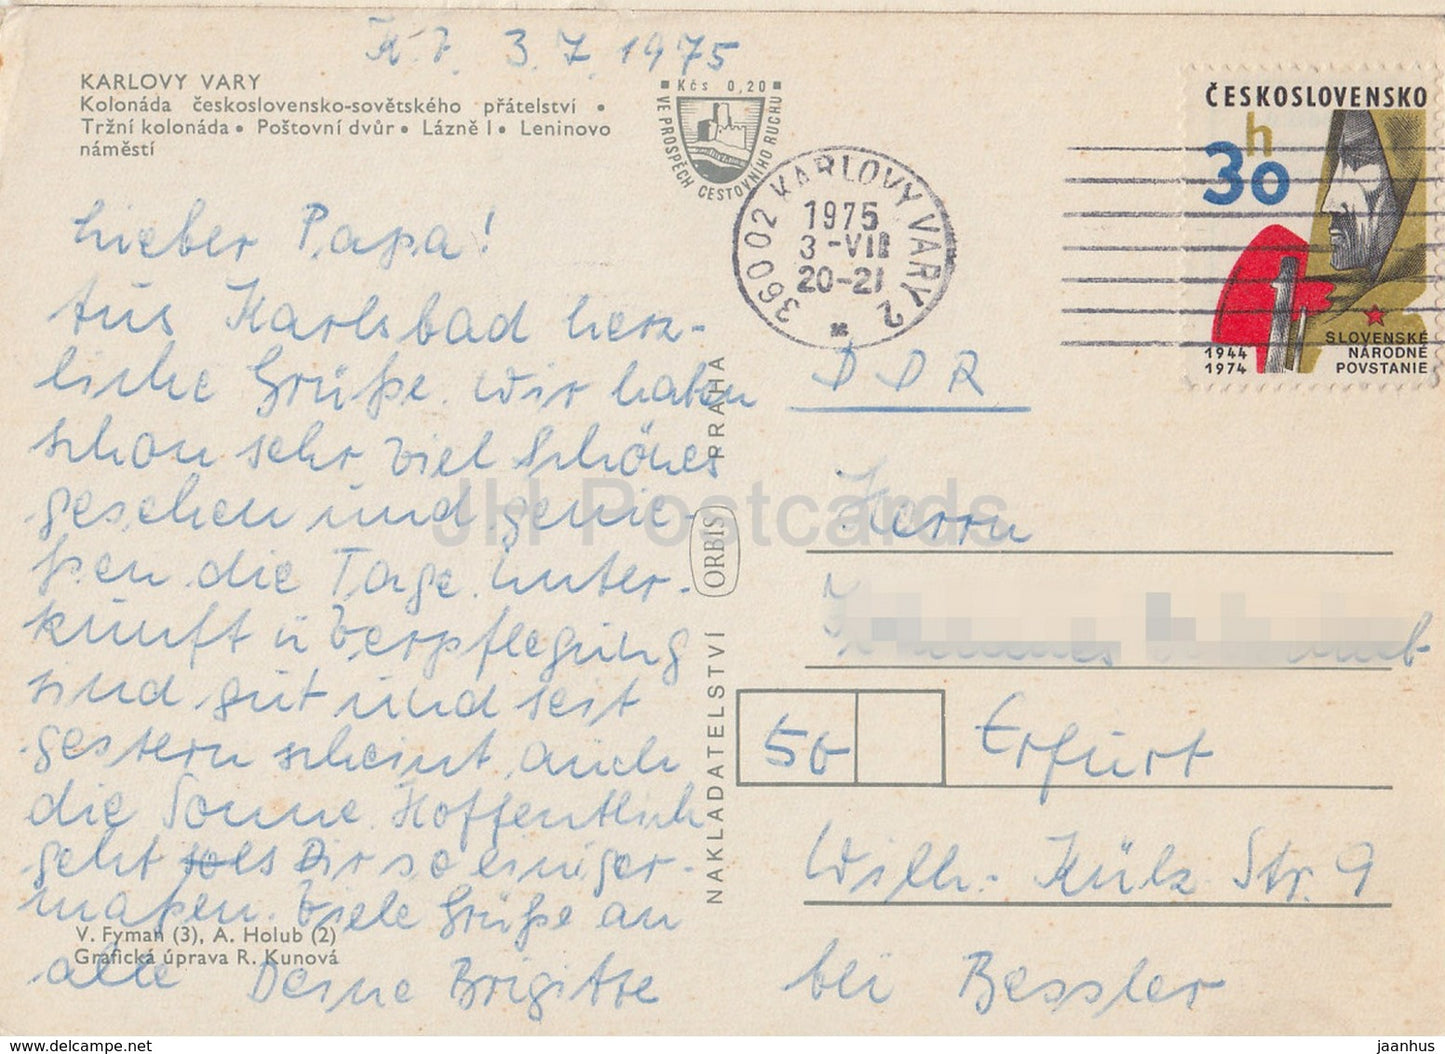 K. V. 3.7.1975
KARLOVY VARY
Kolonáda československo-sovětského přátelství •
Tržní kolonáda • Poštovní dvůr • Lázně I • Leninovo
náměstí
Kčs 0,20
VE PROSPĚCH CESTOVNÍHO RUCHU
360 02 KARLOVY VARY 2
1975
3-VII
20-21
ČESKOSLOVENSKO
30 h
SLOVENSKÉ
NÁRODNÉ
POVSTANIE
1944
1974
Lieber Papa!
Aus Karlsbad herz-
liche Grüße. Wir haben
schon sehr viel Schönes
gesehen und genie-
ßen die Tage. Unter-
kunft u. Verpflegung
sind gut und seit
gestern scheint auch
die Sonne. Hoffentlich
geht es Dir so einiger-
maßen. Viele Grüße an
alle Deine Brigitte
V. Fyman (3), A. Holub (2)
Grafická úprava R. Kunová
NAKLADATELSTVÍ ORBIS PRAHA
DDR
Herrn
50 Erfurt
Wilh.-Külz-Str. 9
bei Bessler
JH Postcards
www.hippostcard.com
jaanhus